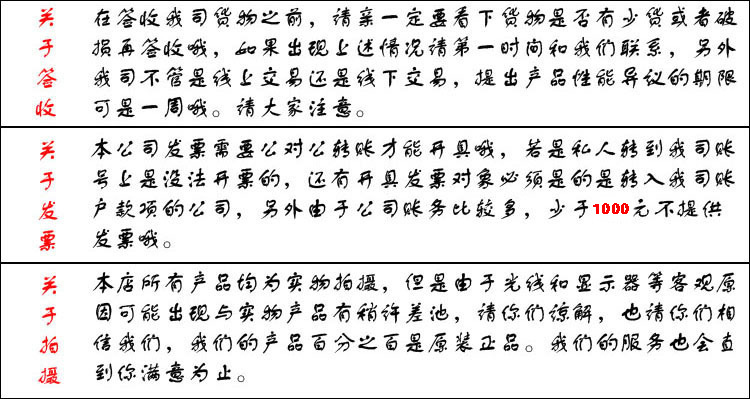 关于签收
在签收我司货物之前，请亲一定要看下货物是否有少货或者破
损再签收哦，如果出现上述情况请第一时间和我们联系，另外
我司不管是线上交易还是线下交易，提出产品性能异议的期限
可是一周哦。请大家注意。
关于发票
本公司发票需要公对公转账才能开具哦，若是私人转到我司账
号上是没法开票的，还有开具发票对象必须是的是转入我司账
户款项的公司，另外由于公司账务比较多，少于1000元不提供
发票哦。
关于拍摄
本店所有产品均为实物拍摄，但是由于光线和显示器等客观原
因可能出现与实物产品有稍许差池，请你们谅解，也请你们相
信我们，我们的产品百分之百是原装正品。我们的服务也会直
到你满意为止。